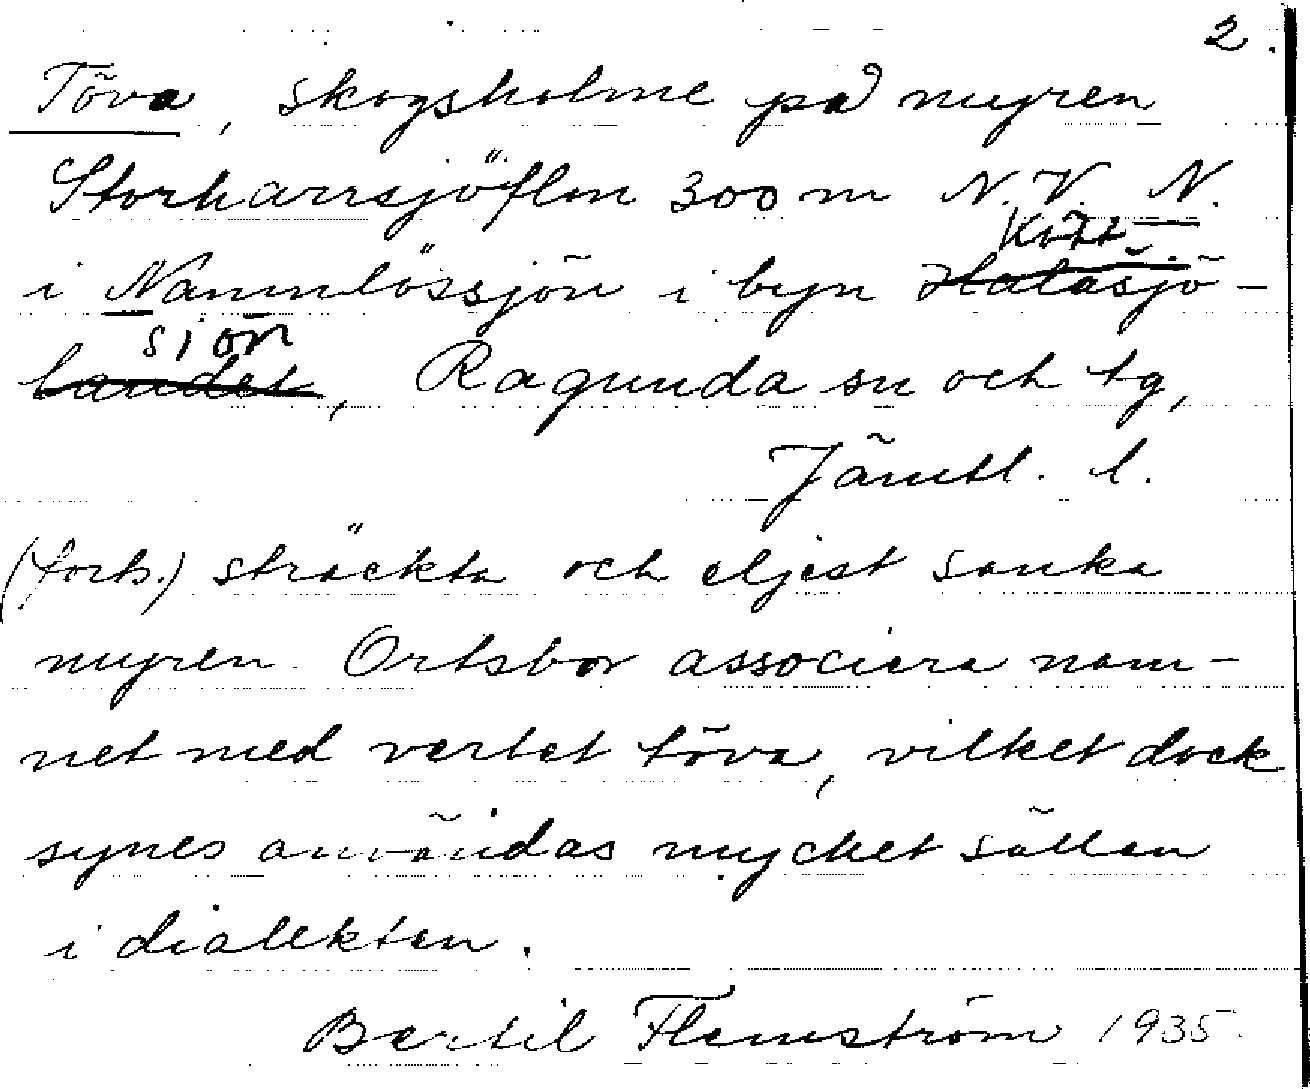 2.
Töva, skogsholme på myren
Storharrsjöflon 300 m N.V. N.
i Namnlössjön i byn Kött-
sjön, Ragunda sn och tg,
Jämtl. l.
(forts.) sträckta och eljest sanka
myren. Ortsbor associera nam-
net med verbet töva, vilket dock
synes användas mycket sällan
i dialekten.
Bertil Flemström 1935.